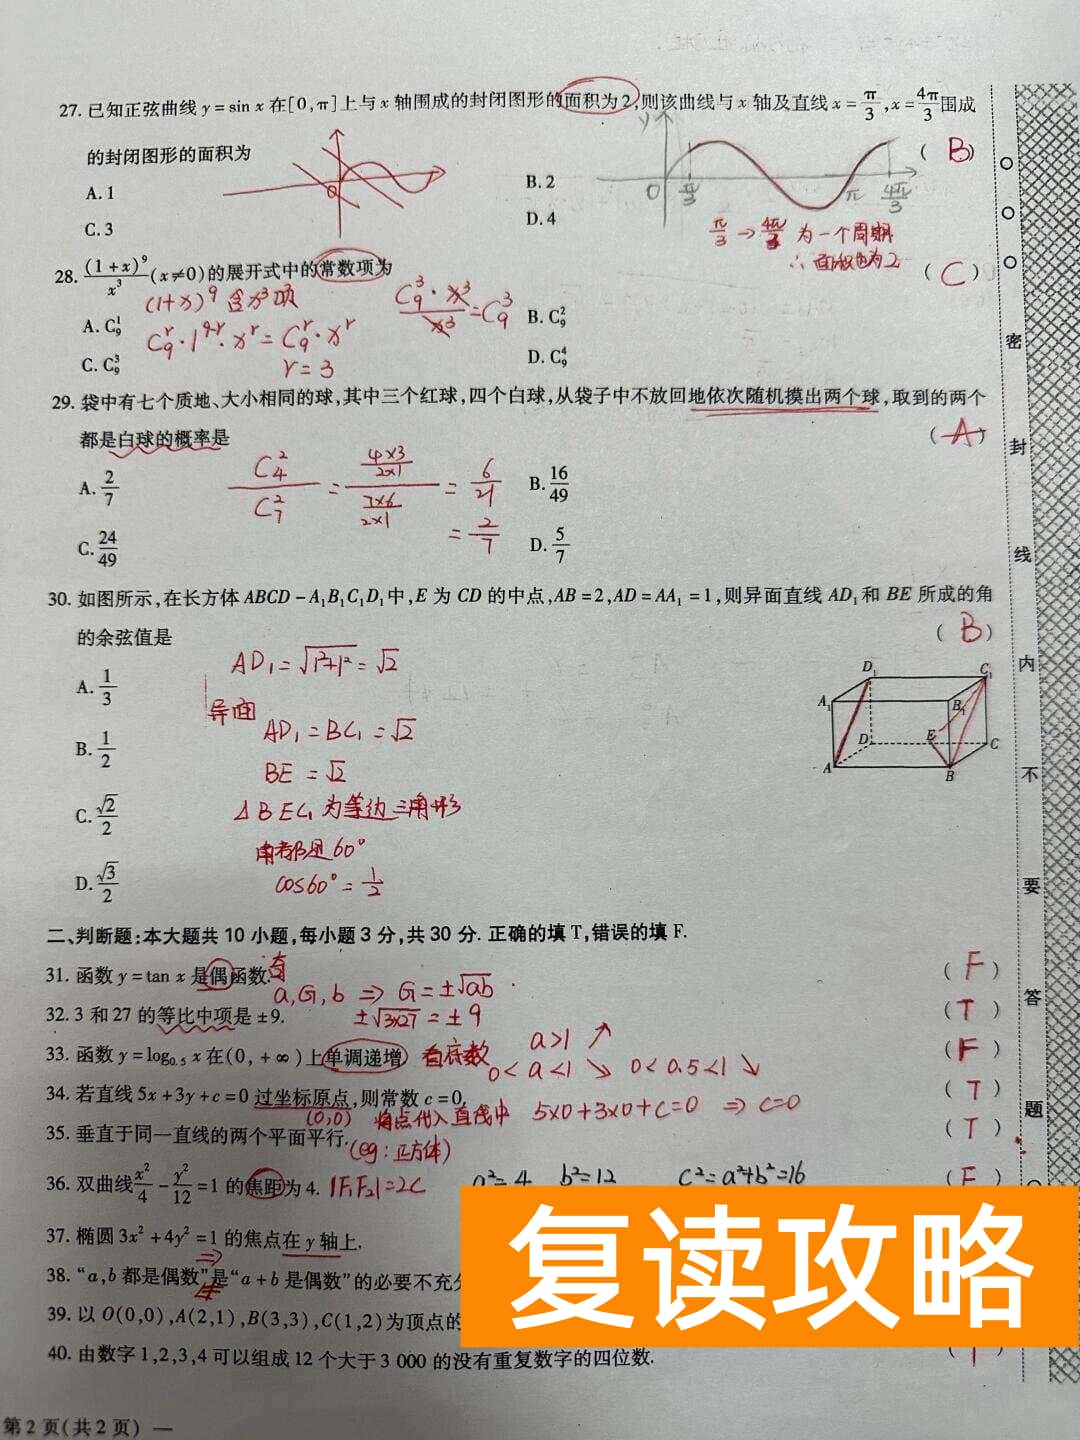 27. 已知正弦曲线 y = sin x 在[0,π]上与 x 轴围成的封闭图形的面积为2,则该曲线与 x 轴及直线 x = π/3, x = 4π/3 围成
的封闭图形的面积为 ( B )
A. 1
B. 2
C. 3
D. 4
y
O
O π/3 π 4π/3
π/3 → 4π/3 为一个周期
∴ 面积也为2
28. (1+x)^9/x^3 (x≠0)的展开式中的常数项为 ( C )
(1+x)^9 含x^3项
C_9^3·x^3/x^3 = C_9^3
A. C_9^1
B. C_9^2
C_9^r·1^{9-r}·x^r = C_9^r·x^r
C. C_9^3
D. C_9^4
r = 3
29. 袋中有七个质地、大小相同的球,其中三个红球,四个白球,从袋子中不放回地依次随机摸出两个球,取到的两个
都是白球的概率是 ( A )
A. 2/7
B. 16/49
C_4^2/C_7^2 = (4×3/2×1)/(7×6/2×1) = 6/21
= 2/7
C. 24/49
D. 5/7
30. 如图所示,在长方体 ABCD - A₁B₁C₁D₁中,E 为 CD 的中点,AB = 2,AD = AA₁ = 1,则异面直线 AD₁和 BE 所成的角
的余弦值是 ( B )
A. 1/3
AD₁ = √(1²+1²) = √2
异面
AD₁ = BC₁ = √2
B. 1/2
BE = √2
C. √2/2
△BEC₁ 为等边三角形
角都是60°
D. √3/2
cos60° = 1/2
D₁ C₁
A₁ B₁
D E C
A B
二、判断题:本大题共 10 小题,每小题 3 分,共 30 分. 正确的填 T,错误的填 F.
31. 函数 y = tan x 是偶函数. 奇 ( F )
a,G,b ⇒ G = ±√ab
32. 3 和 27 的等比中项是 ±9. ±√3×27 = ±9 ( T )
33. 函数 y = log₀.₅ x 在(0, +∞)上单调递增 看底数 a>1 ↗ ( F )
0<a<1 ↘ 0<0.5<1 ↘
34. 若直线 5x + 3y + c = 0 过坐标原点,则常数 c = 0. ( T )
(0,0) 将点代入直线中 5×0+3×0+c=0 ⇒ c=0
35. 垂直于同一直线的两个平面平行. ( T )
(eg:正方体)
36. 双曲线 x²/4 - y²/12 = 1 的焦距为 4. |F₁F₂|=2c a²=4 b²=12 c²=a²+b²=16 ( F )
37. 椭圆 3x² + 4y² = 1 的焦点在 y 轴上.
38. “a,b 都是偶数”是“a + b 是偶数”的必要不充分
39. 以 O(0,0),A(2,1),B(3,3),C(1,2)为顶点的
40. 由数字 1,2,3,4 可以组成 12 个大于 3 000 的没有重复数字的四位数.
第 2 页(共 2 页) —
密
封
线
内
不
要
答
题
复读攻略